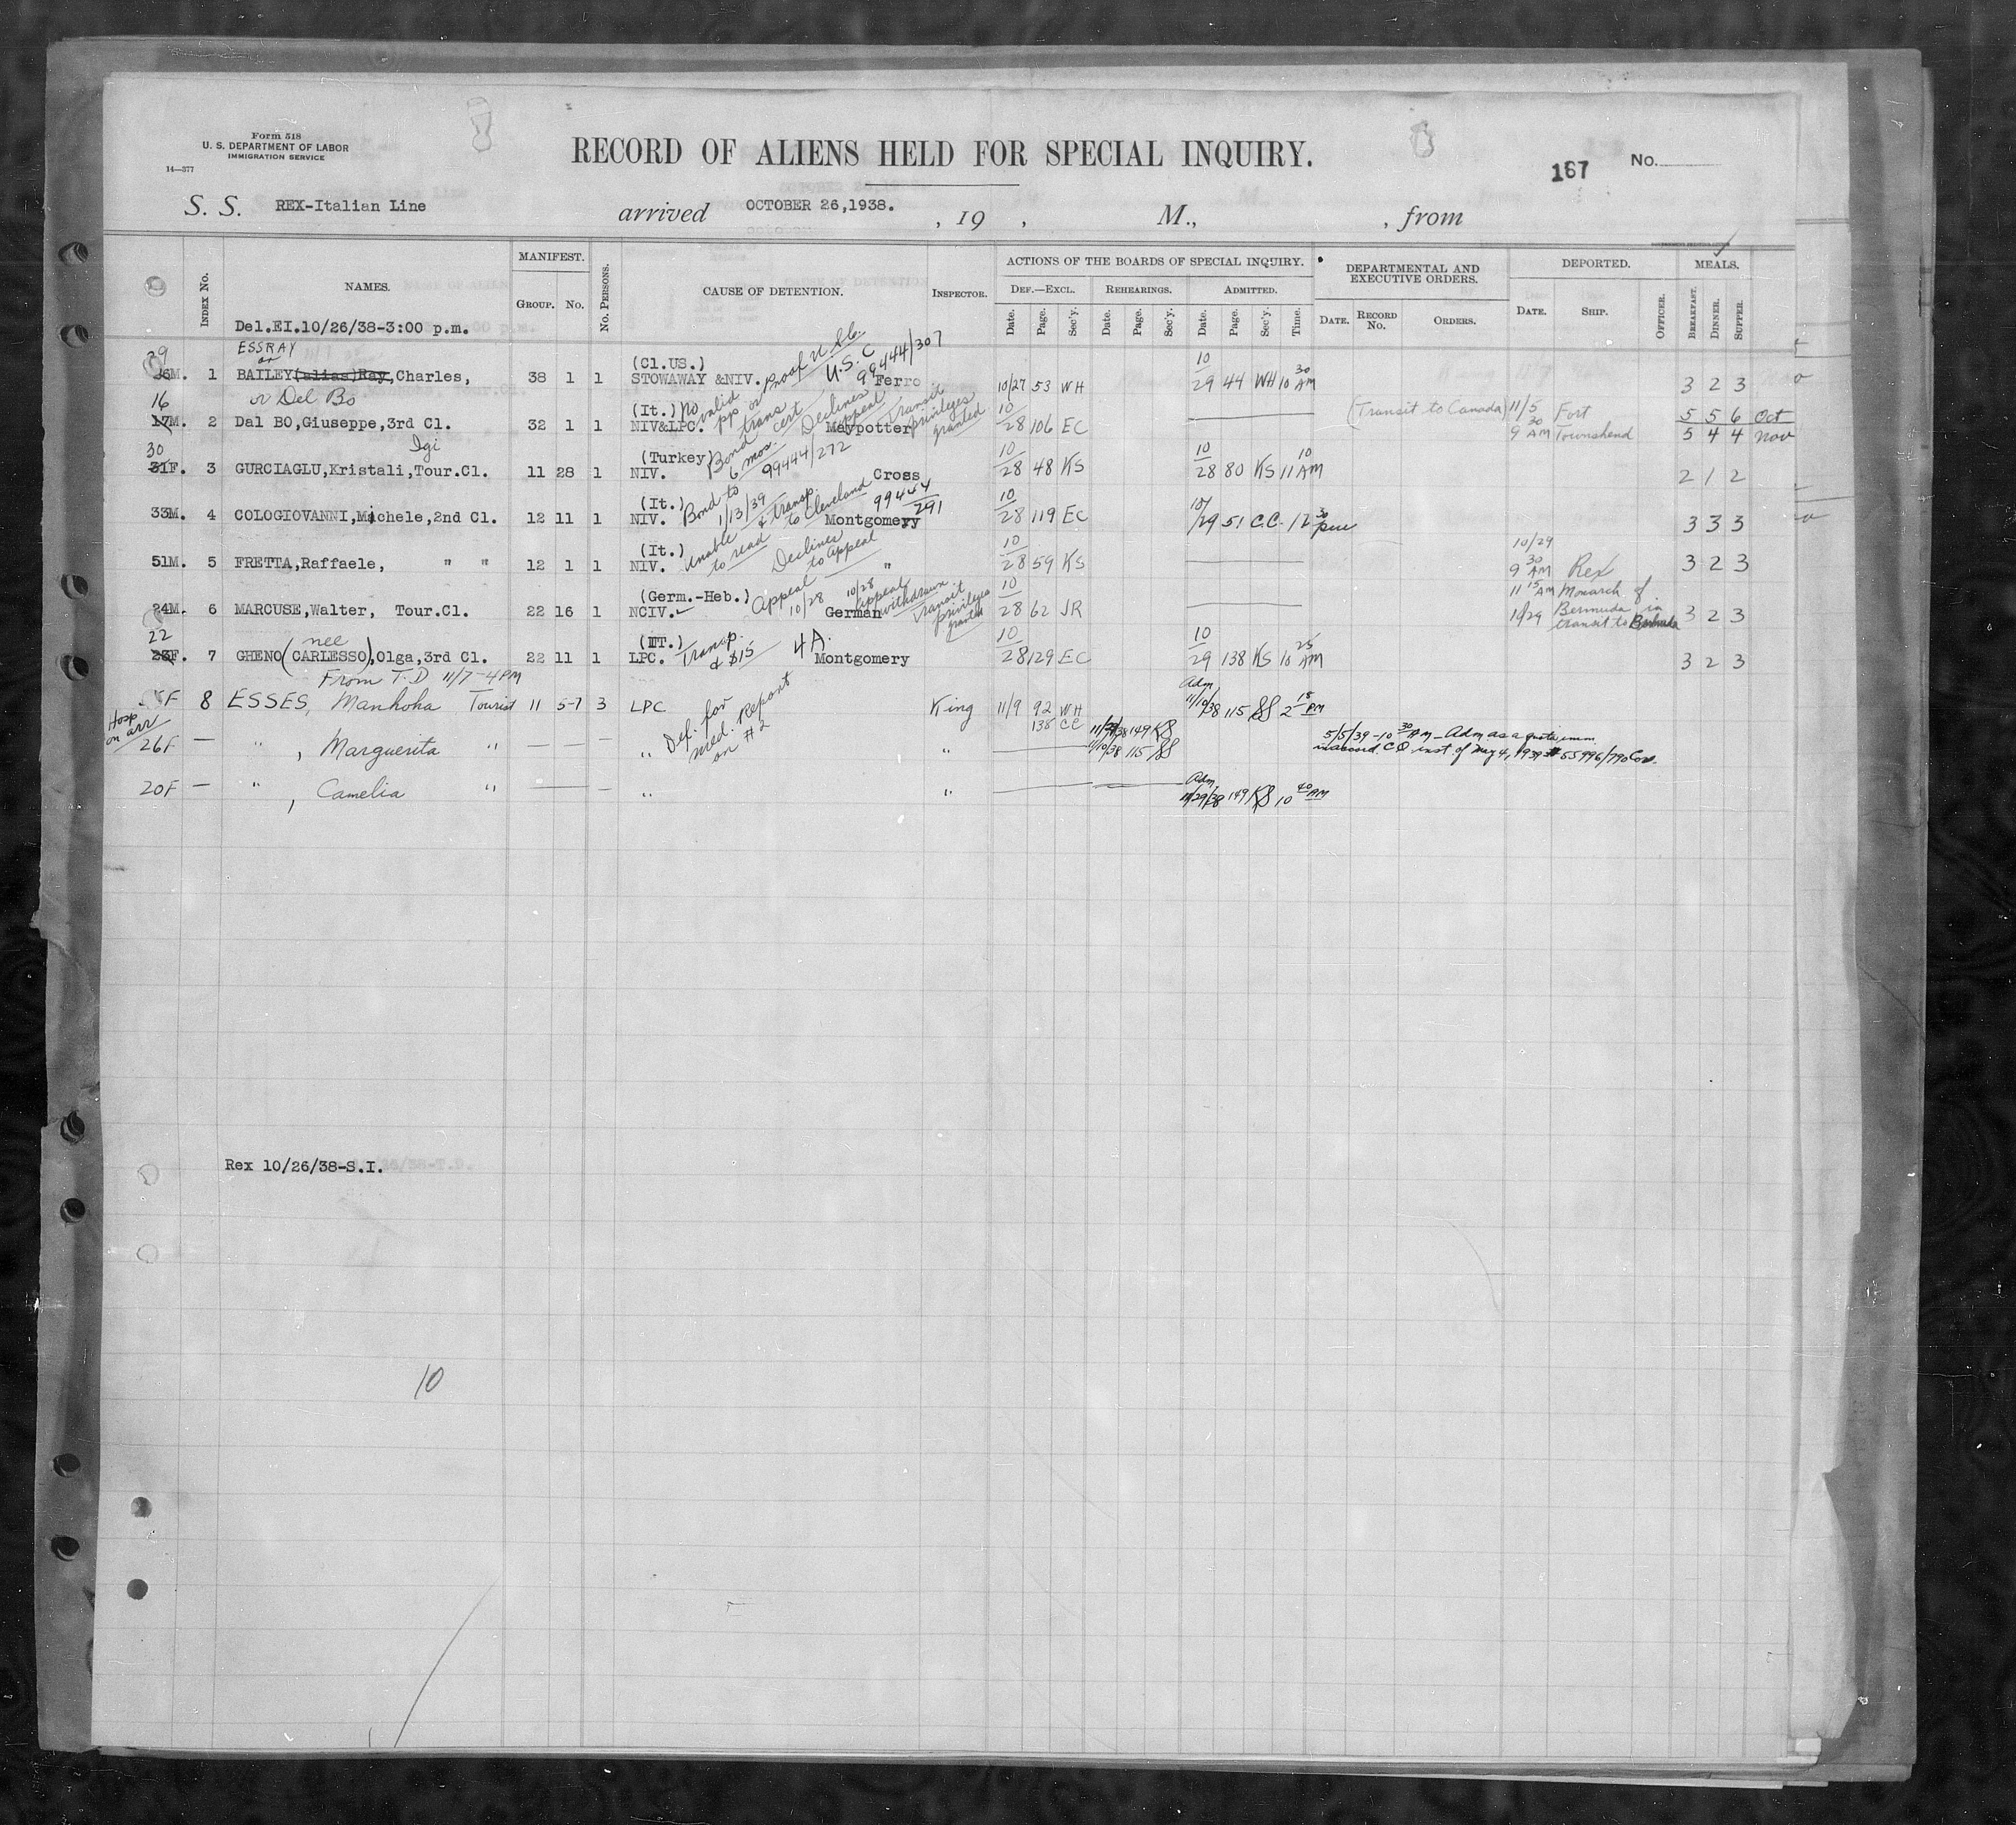 Form 518
U. S. DEPARTMENT OF LABOR
IMMIGRATION SERVICE
14—377
RECORD OF ALIENS HELD FOR SPECIAL INQUIRY.
167 No.
S. S. REX-Italian Line arrived OCTOBER 26,1938. , 19 , M., , from
INDEX No. NAMES. MANIFEST. GROUP. No. No. PERSONS. CAUSE OF DETENTION. INSPECTOR. ACTIONS OF THE BOARDS OF SPECIAL INQUIRY. DEF.—EXCL. Date. Page. Sec'y. REHEARINGS. Date. Page. Sec'y. ADMITTED. Date. Page. Sec'y. Time. DEPARTMENTAL AND EXECUTIVE ORDERS. DATE. RECORD No. ORDERS. DEPORTED. DATE. SHIP. OFFICER. MEALS. BREAKFAST. DINNER. SUPPER.
Del.EI.10/26/38-3:00 p.m.
29 ESSRAY or
26M. 1 BAILEY(alias)Ray,Charles, 38 1 1 (Cl.US.) STOWAWAY &NIV. Proof U.S.C. U.S.C 99444/307 Ferro 10/27 53 WH 10/29 44 WH 10 30 AM 3 2 3
16 or Del Bo
17M. 2 Dal BO,Giuseppe,3rd Cl. 32 1 1 (It.) NIV&LPC. No valid pp or trans cert Declines Appeal Transit privileges granted Maypotter 10/28 106 EC (Transit to Canada) 11/5 9 30 AM Fort Townshend 5 5 6 Oct 5 4 4 Nov
30 Igi
31F. 3 GURCIAGLU,Kristali,Tour.Cl. 11 28 1 (Turkey) NIV. Bond 6 mos. 99444/272 Cross 10/28 48 KS 10/28 80 KS 11 10 AM 2 1 2
33M. 4 COLOGIOVANNI,Michele,2nd Cl. 12 11 1 (It.) NIV. Bond to 1/13/39 & transp. to Cleveland 99444/291 Montgomery 10/28 119 EC 10/29 51 C.C. 12 30 pm 3 3 3
51M. 5 FRETTA,Raffaele, " " 12 1 1 (It.) NIV. Unable to read Declines to Appeal " 10/28 59 KS 10/29 9 30 AM Rex 3 2 3
24M. 6 MARCUSE,Walter, Tour.Cl. 22 16 1 (Germ.-Heb.) NCIV. Appeal 10/28 10/28 Appeal withdrawn. Transit privileges granted German 10/28 62 JR 11 15 AM 10/29 Monarch of Bermuda in transit to 3 2 3
22 nee
23F. 7 GHENO(CARLESSO),Olga,3rd Cl. 22 11 1 (IT.) LPC. Transp. & $15 4A. Montgomery 10/28 129 EC 10/29 138 KS 10 25 AM 3 2 3
From T.D 11/7-4PM
8 ESSES, Manhoha Tourist 11 5-7 3 LPC Def. for Med. Report on #2 King 11/9 92 WH 138 CC Adm 11/10/38 115 2 15 PM
Hosp on arr
26F — " , Marguerita " — — — " " 149 KS 11/10/38 115 5/5/39-10 30 AM - Adm as a quota imm. in accord CO inst of May 4, 1939 # 55996/790 Con.
20F — " , Camelia " — — " " Adm 11/29/38 149 KS 10 40 AM
Rex 10/26/38-S.I.
10